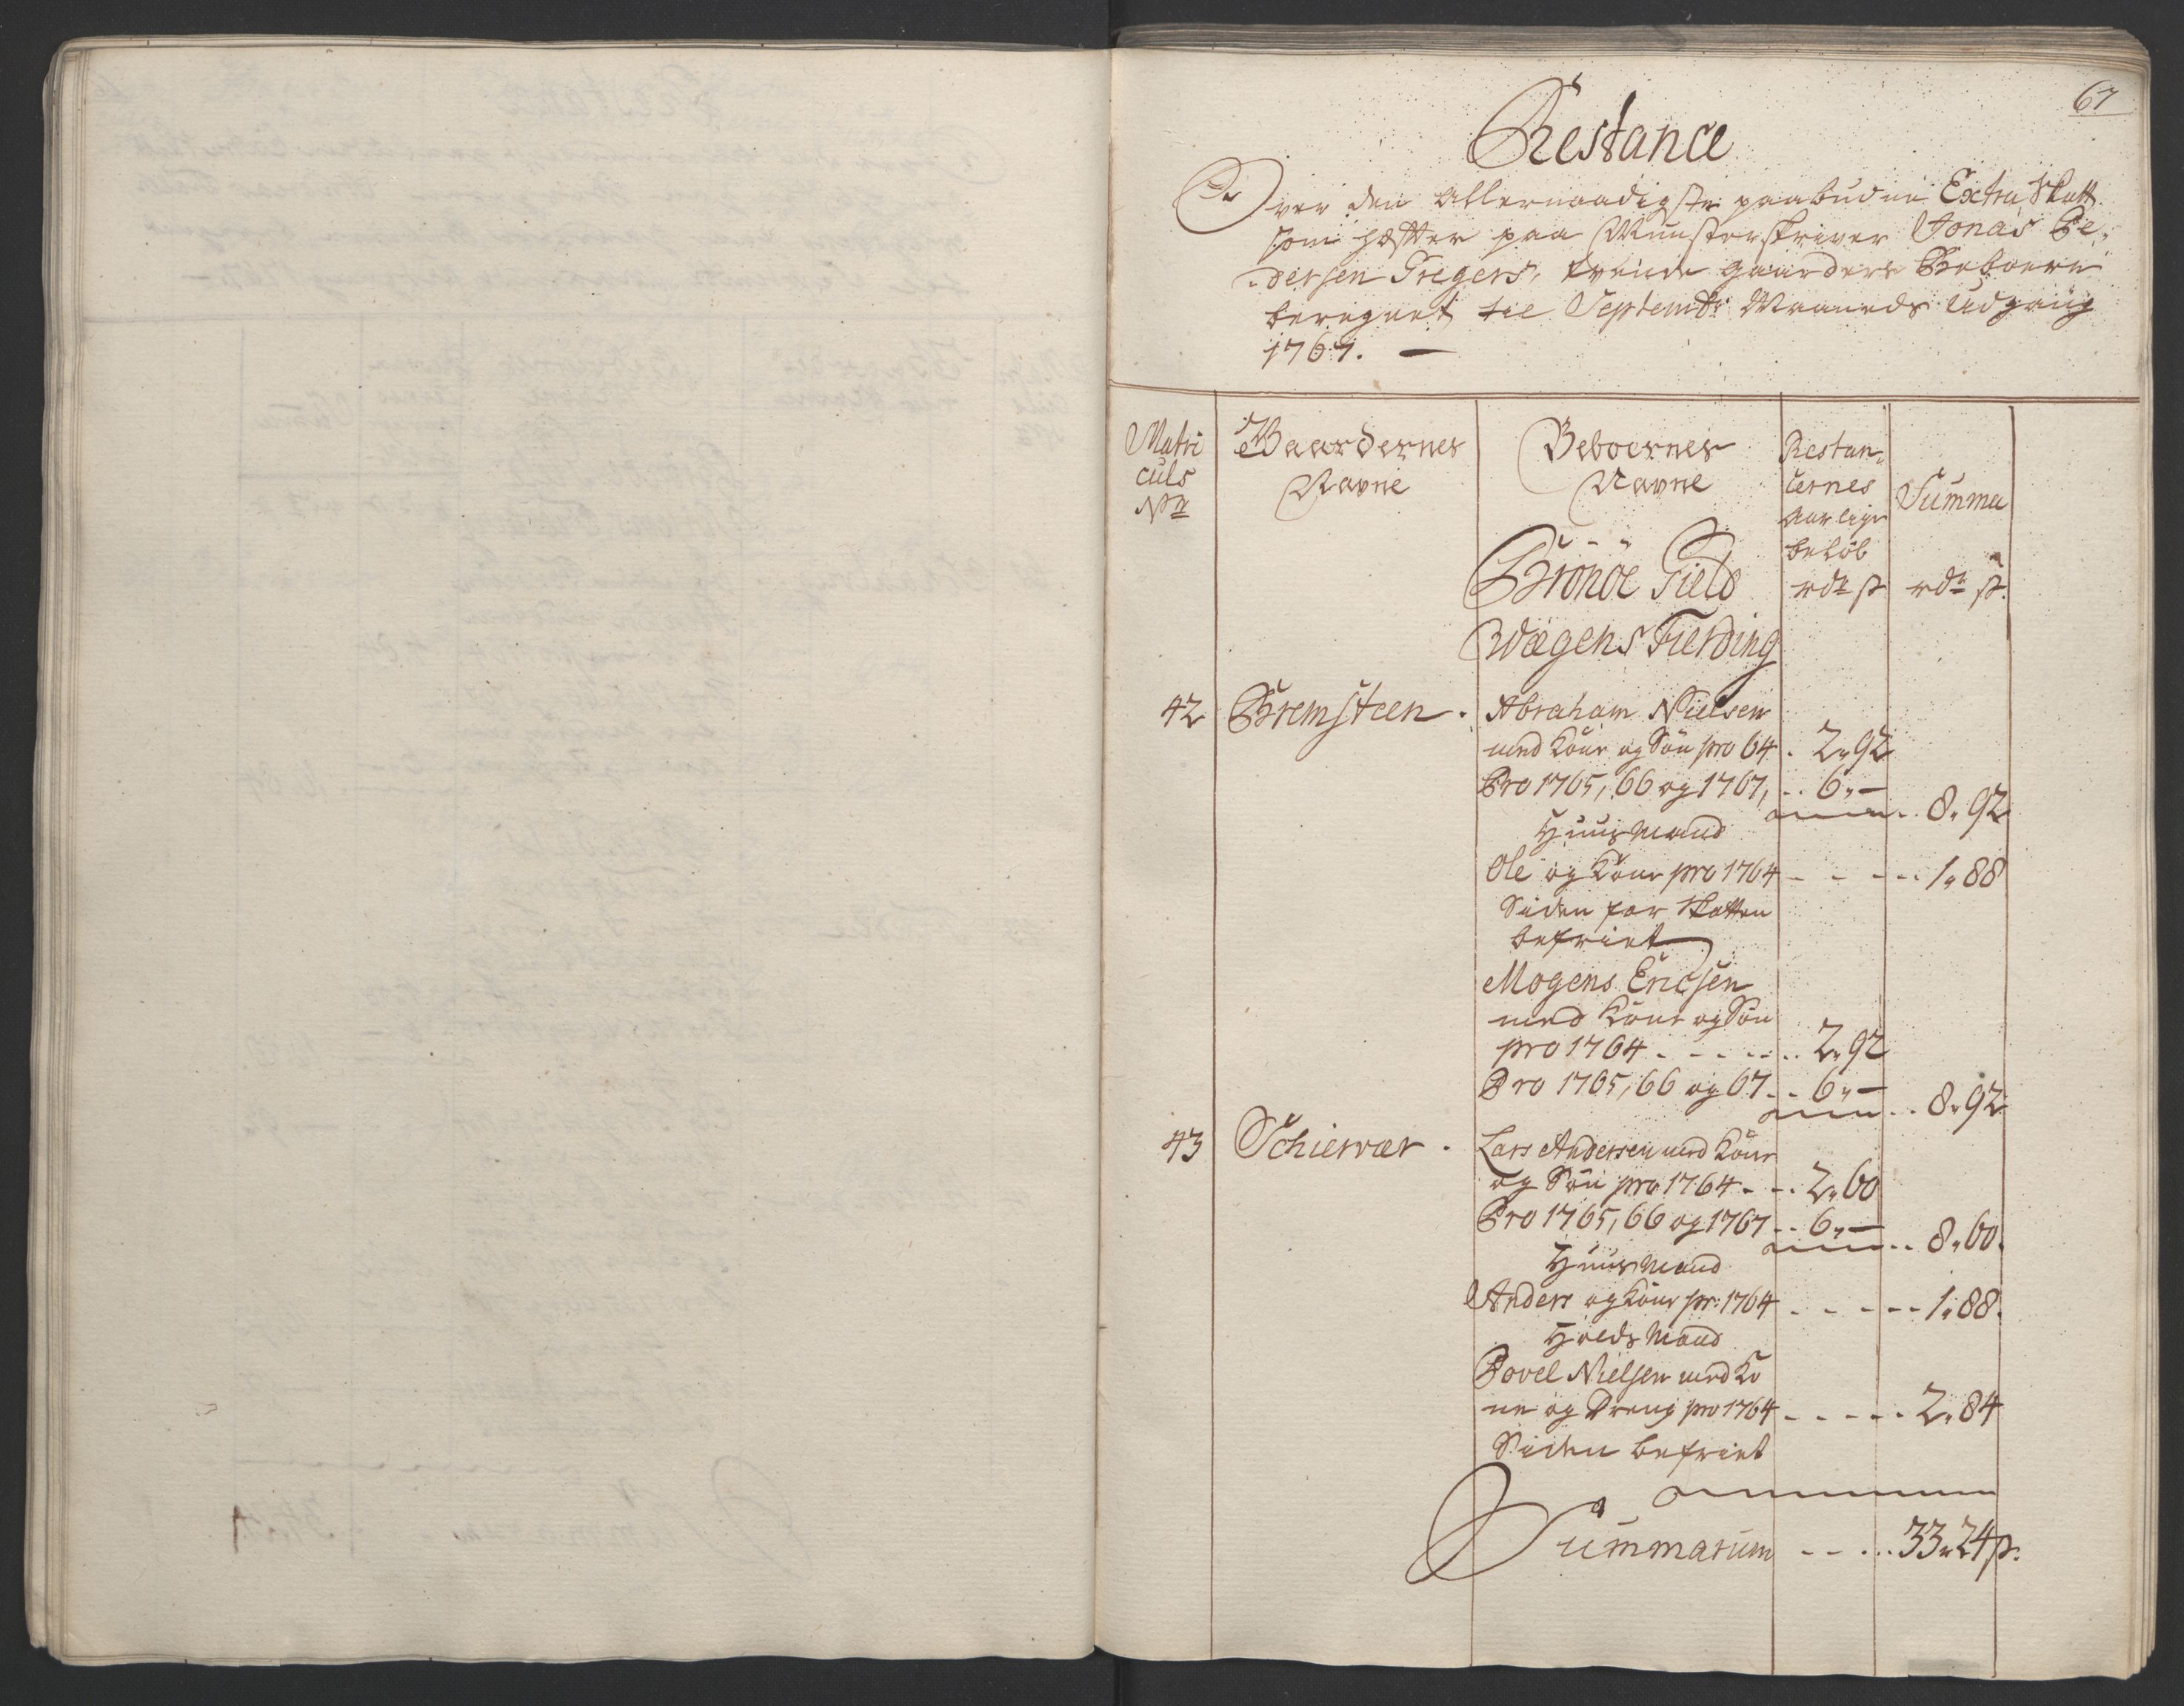 67
Restance
Over den Allernaadigste paabudne Extra Skatt
som hæfter paa Munsterskriver Jonas Pe,
dersen Gregers, tvende gaarders Beboere
beregnet til Septembr Maaneds Udgang
1767. —
Matri
culs
No
Gaardernes
Navne
Beboernes
Navne
Restan,
cernes
aarlige
beløb
rdr s
Summa
rdr s.
Brönöe Field
Wægens Fierding
42 Bremsteen. Abraham Nielsen
med Kone og Søn pro 64. 2„92
Pro 1765, 66 og 1767, .. 6„— .. 8„92
Huusmand
Ole og Kone pro 1764 - - - - 1„88
Siden for Skatten
befriet
Mogens Ericsen
med Kone og Søn
pro 1764 . - - - .. 2„92
Pro 1765, 66 og 67 .. 6„— .. 8„92
43 Schiervær. Lars Andersen med Kone
og Søn pro 1764 - .. 2„60
Pro 1765, 66 og 1767 .. 6„— .. 8„60.
Huusmand
Anders og Kone pr: 1764 - - - - 1„88.
Hoeds Mand
Povel Nielsen med Ko
ne og Dreng pro 1764 - - - - 2„84
Siden befriet
Summarum - - ... 33„24 s.